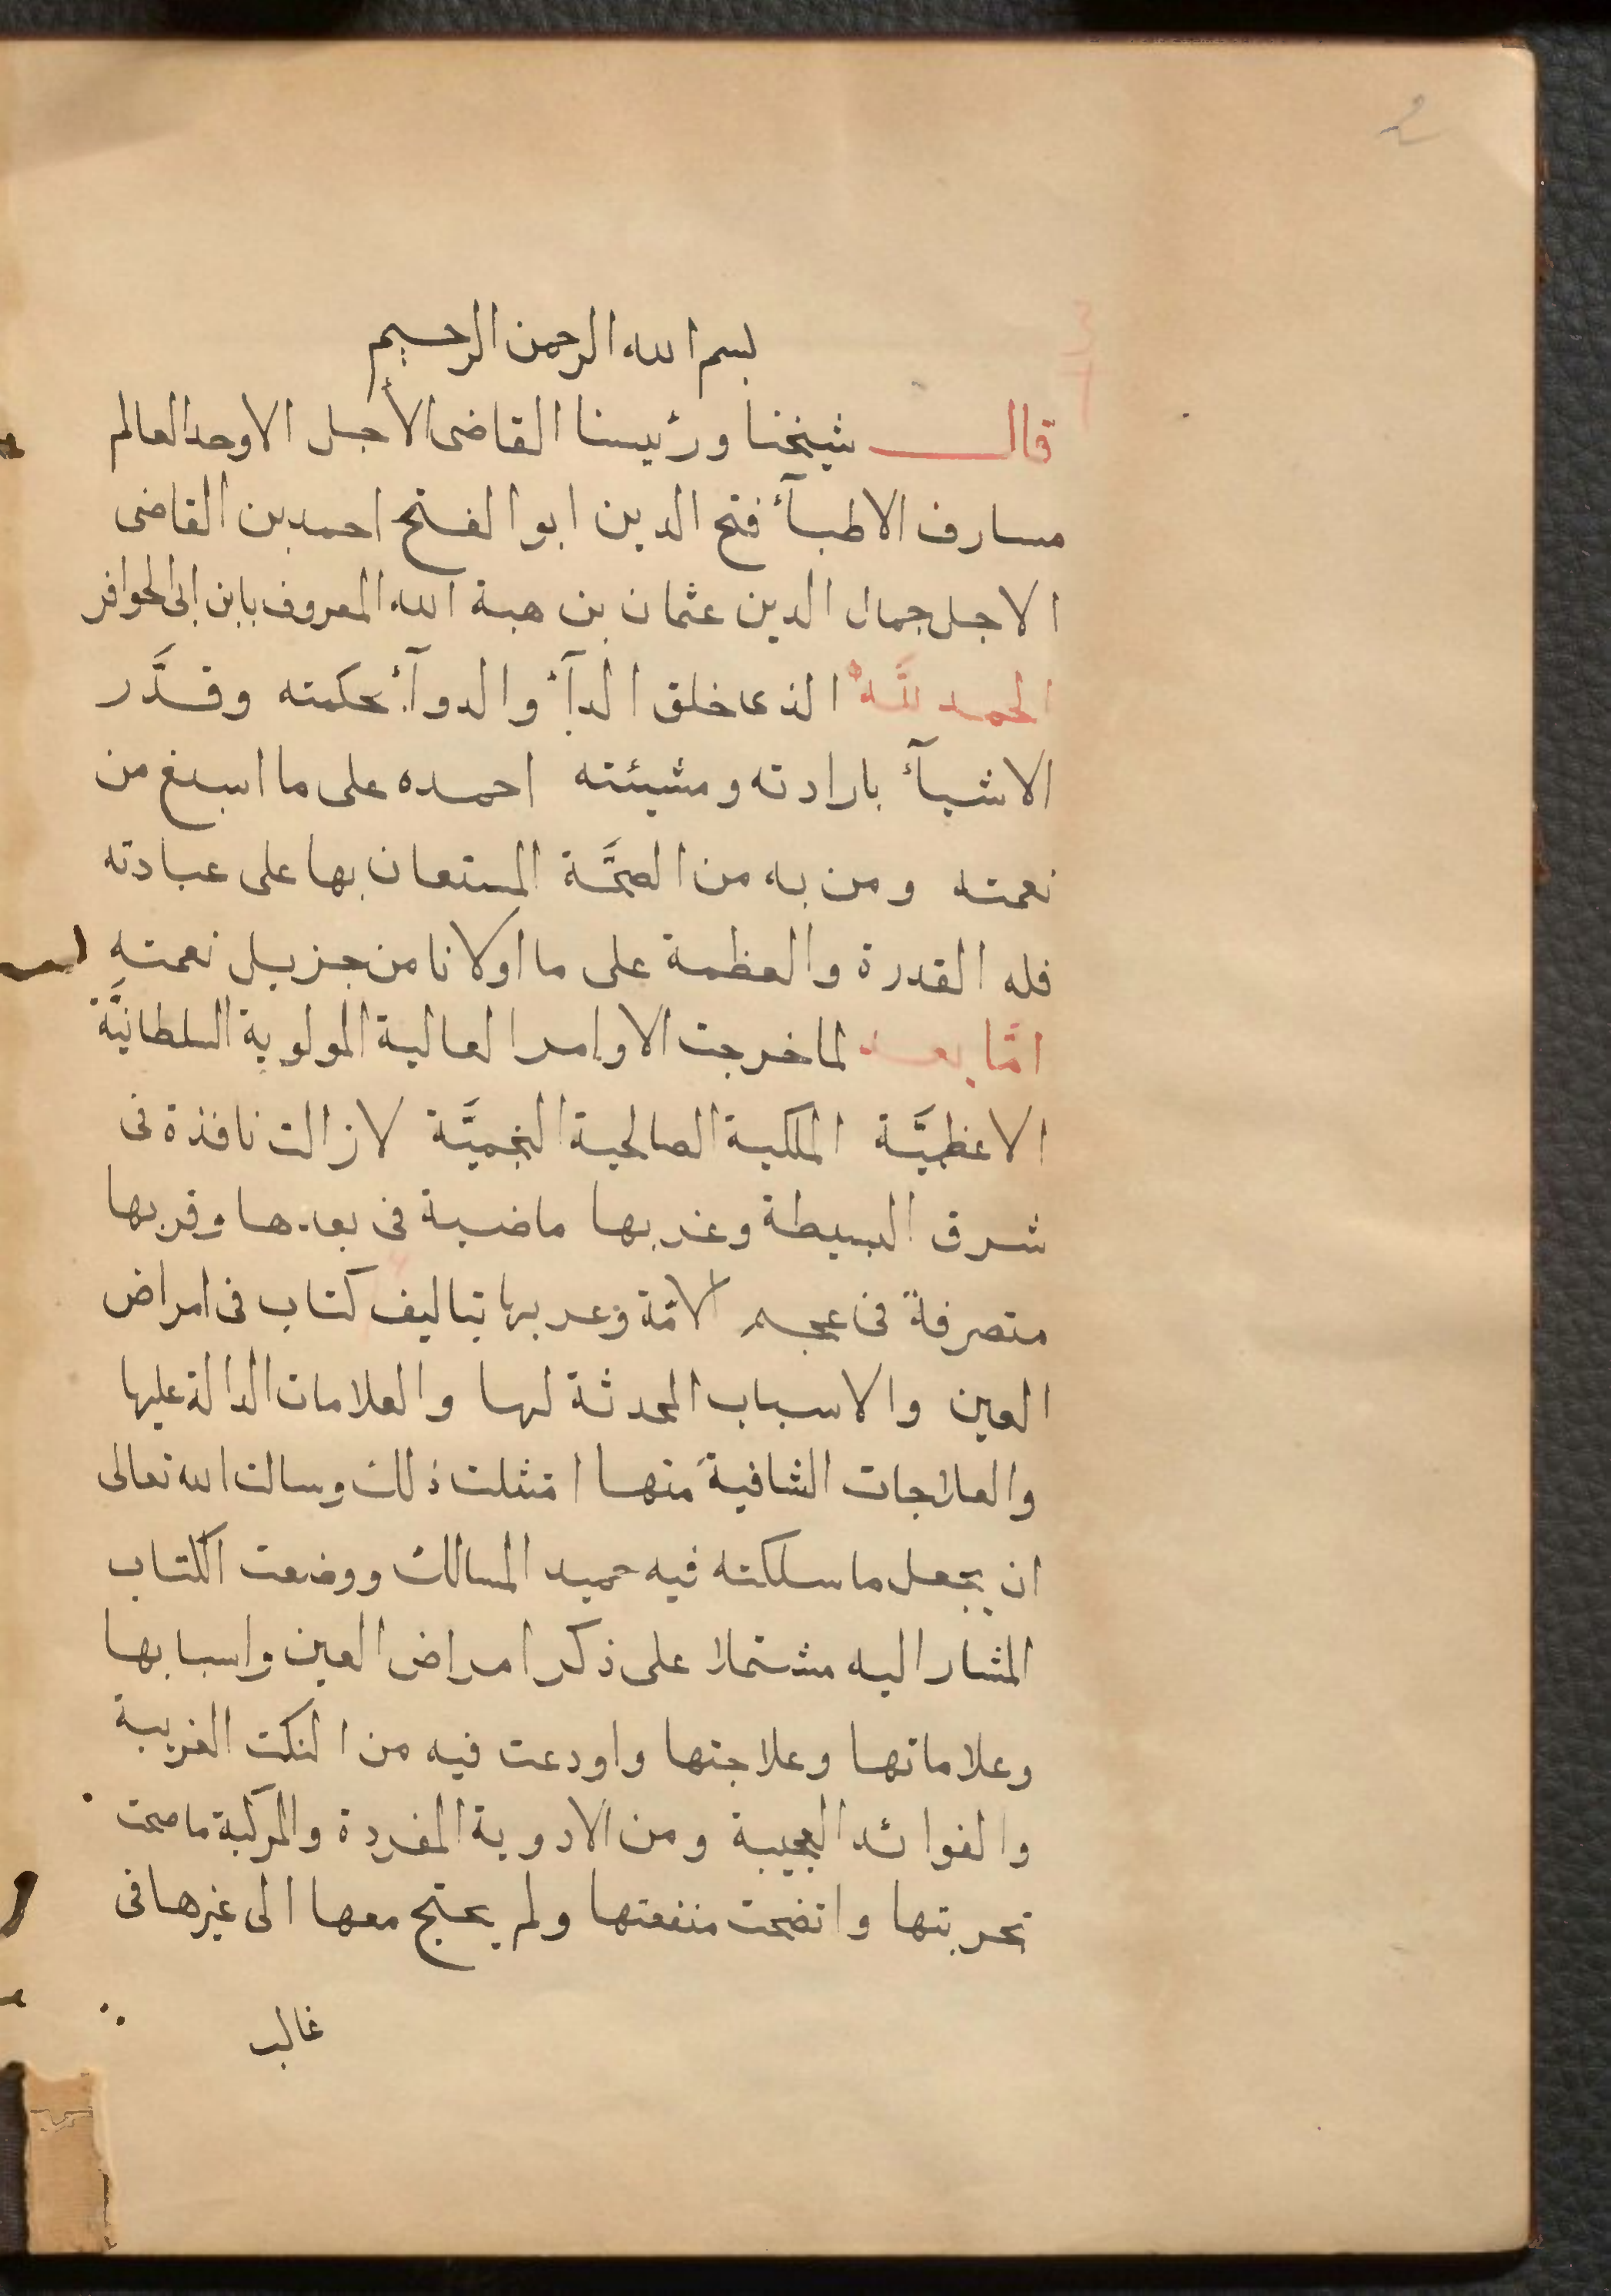 2
بسم الله الرحمن الرحيم
قال شيخنا ورئيسنا القاضى الأجل الاوحد العالم
مسارف الاطبآء فتح الدين ابوا لفتح احمد بن القاضى
الاجل جمال الدين عثمان بن هبة الله المعروف بابن ابى الحوافر
الحمد للَّه الذى خلق الدآء والدوآء بحكمته وقدَّر
الاشيآء بارادته ومشيئته احمده على ما اسبغ من
نعمته ومن به من الصحَّة المستعان بها على عبادته
فله القدرة والعظمة على ما اولانا من جزيل نعمته
امَّا بعد لما خرجت الاوامر العالية المولوية السلطانيَّة
الاعظميَّة الملكية الصالحية النجميَّة لازالت نافذة فى
شرق البسيطة وغربها ماضية فى بعدها وقربها
متصرفة فى عجم الامَّة وعربها بتاليف كتاب فى امراض
العين والاسباب المحدثة لها والعلامات الدالة عليها
والعلاجات الشافية منها امتثلت ذلك وسالت الله تعالى
ان يجعل ما سلكته فيه حميد المسالك ووضعت الكتاب
المشار اليه مشتملا على ذكر امراض العين واسبابها
وعلاماتها وعلاجتها واودعت فيه من النكت الغريبة
والفوائد العجيبة ومن الادوية المفردة والمركبة ما صحت
تجربتها واتضحت منفعتها ولم يحتج معها الى غيرها فى
غالب